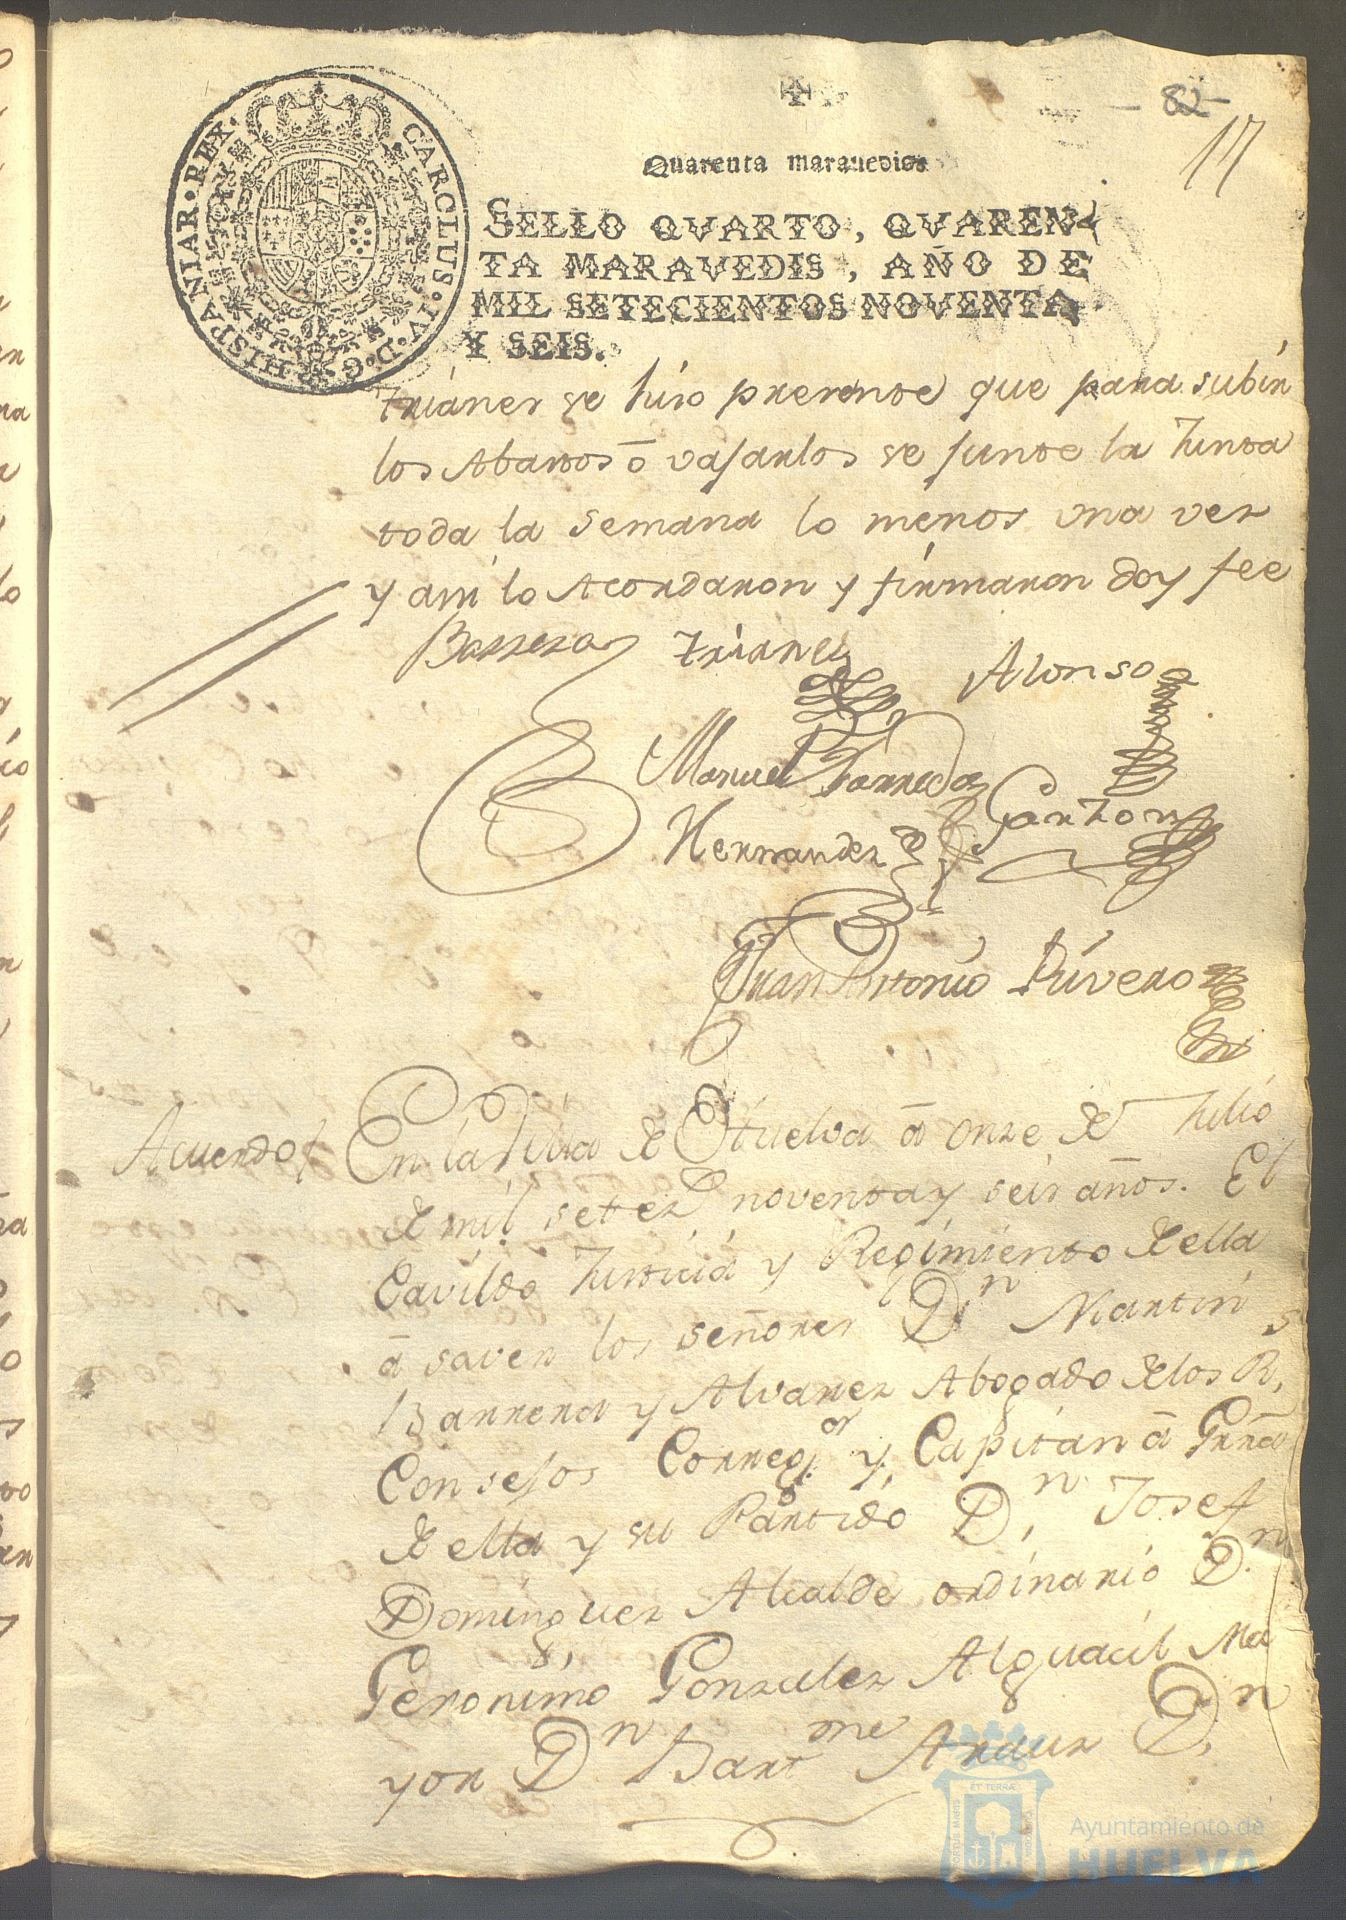 82
17
Quarenta marauedios
CAROLUS·IV·D·G·HISPANIAR·REX·
SELLO QVARTO, QVAREN-
TA MARAVEDIS, AÑO DE
MIL SETECIENTOS NOVENTA
Y SEIS.
Trianes se hiso presente que para subir
los Abastos ō vajarlos se junte la Junta
toda la semana lo menos una vez
y assi lo Acordaron y firmaron doy fee
Barrera Trianes Alonso
Manuel Barreda
Hernandez Garzon
Juan Antonio Rivero
Acuerdo En la Villa de Huelva ā onze de Julio
de mil setez.s noventa y seis años. El
Cavildo Justicia y Regimiento de ella
ā saver los señores Dn Martin
Barrera y Alvarez Abogado de los Rs.
Consejos Correg.or y Capitan ā Grrã
de ella y su Partido Dn. Josef
Dominguez Alcalde ordinario Dn.
Geronimo Gonzalez Alguacil Ma
yor Dn Bartme Arduz Dn.
Ayuntamiento de
HUELVA